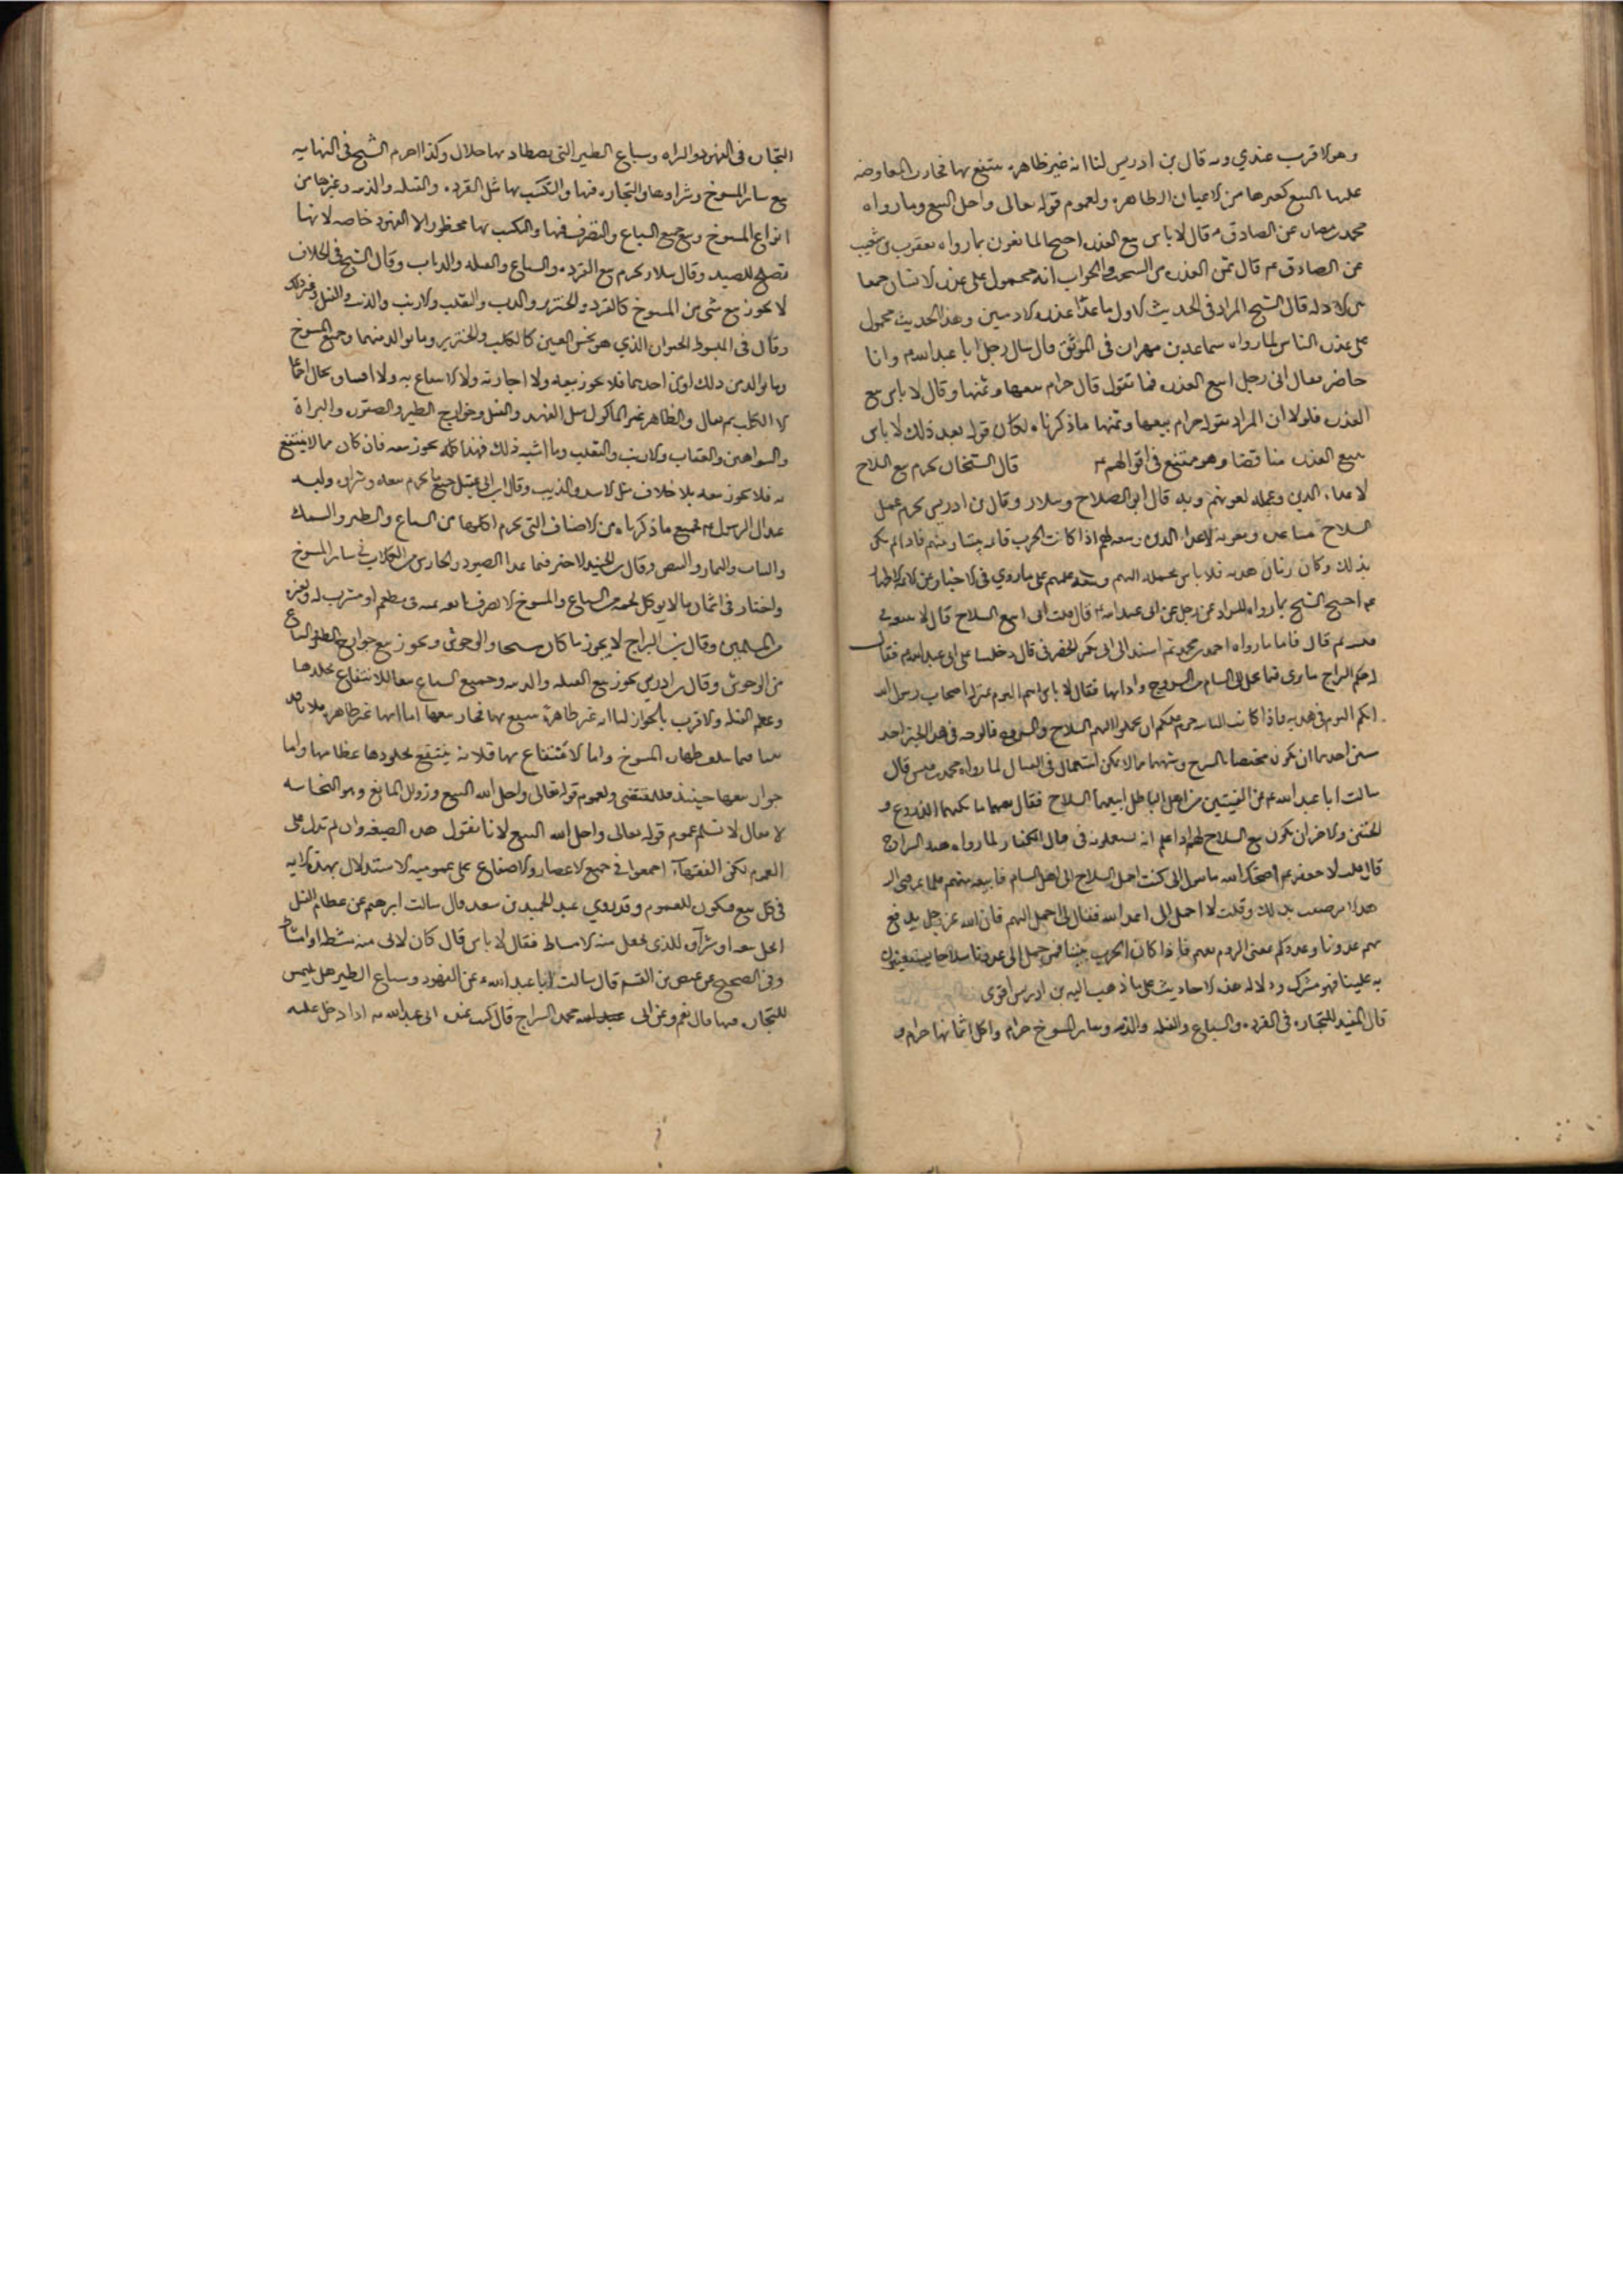 وهو الاقرب عندي وبه قال بن ادريس لنا انه غير طاهرة ينتفع بها فجازت المعاوضه
عليها بالبيع كغيرها من الاعيان الطاهرة ولعموم قوله تعالى واحل البيع وما رواه
محمد بن مصارف عن الصادق ع قال لا باس ببيع العذرة احتج المانعون بما رواه يعقوب بن شعيب
عن الصادق ع قال ثمن العذرة من السحت والجواب انه محمول على عذرة الانسان جمعا
بين الادلة قال الشيخ المراد في الحديث الاول ما عدا عذرة الادميين وهذا الحديث محمول
على عذرة الناس لما رواه سماعة بن مهران في الموثق قال سال رجل ابا عبد الله ع وانا
حاضر فقال اني رجل ابيع العذرة فما تقول قال حرام بيعها وثمنها وقال لا باس ببيع
العذرة فلولا ان المراد بقوله حرام بيعها وثمنها ما ذكرناه لكان قوله بعد ذلك لا باس
ببيع العذرة مناقضا وهو ممتنع في اقوالهم ع قال الشيخان يحرم بيع السلاح
لاعداء الدين وعمله لمعونتهم وبه قال ابو الصلاح وسلار وقال بن ادريس يحرم عمل
السلاح مساعدة ومعونة لاعداء الدين وبيعه لهم اذا كانت الحرب قائمة بيننا وبينهم فاذا لم يكن
بذلك وكان زمان هدنة فلا باس بحمله اليهم وبيعه عليهم على ما روي في الاخبار عن الائمة الاطهار
ع احتج الشيخ بما رواه السراد عن رجل عن ابي عبد الله ع قال قلت اني ابيع السلاح قال لا تبعه في
فتنة ثم قال فاما ما رواه احمد بن محمد ثم اسند الى ابي بكر الحضرمي قال دخلنا على ابي عبد الله ع فقال
له حكم السراج ما ترى فيما يحمل الى الشام من السروج واداتها فقال لا باس انتم اليوم بمنزلة اصحاب رسول الله
انكم اليوم في هدنة فاذا كانت المباينة حرم عليكم ان تحملوا اليهم السلاح والسروج فالوجه في هذا الخبر احد
شيئين احدهما ان يكون مختصا بالسروج وشبهها مما لا يمكن استعماله في القتال لما رواه محمد بن قيس قال
سالت ابا عبد الله ع عن الفئتين من اهل الباطل ابيعهما السلاح فقال بعهما ما يكنهما الدروع و
الخفين والاخر ان يكون بيع السلاح لهم اذا علم انه يستعملونه في قتال الكفار لما رواه هند السراج
قال قلت لابي جعفر ع اصلحك الله ما سول اني كنت احمل السلاح الى اهل الشام فابيعه منهم فلما عرفني الله
هذا الامر ضقت بذلك وقلت لا احمل الى اعداء الله فقال لي احمل اليهم فان الله عز وجل يدفع
بهم عدونا وعدوكم يعني الروم بعهم فاذا كانت الحرب بيننا فمن حمل الى عدونا سلاحا يستعينون
به علينا فهو مشرك ودلالة هذه الاحاديث على ما ذهب اليه بن ادريس اقوى
قال المفيد التجارة في القردة والسباع والفيلة والذئبة وساير المسوخ حرام واكل اثمانها حرام و
التجارة في الفهود والبزاة وسباع الطير التي يصطاد بها حلال وكذا احرم الشيخ في النهاية
بيع ساير المسوخ وشراوها والتجارة فيها والتكسب بها مثل القردة والفيلة والذئبة وغيرها من
انواع المسوخ وبيع جميع السباع والتصرف فيها والتكسب بها محظور الا الفهود خاصة لانها
تصلح للصيد وقال سلار يحرم بيع القردة والسباع والفيلة والذئاب وقال الشيخ في الخلاف
لا يجوز بيع شي من المسوخ كالقرد والخنزير والدب والثعلب والارنب والذئب والفيل وغير ذلك
وقال في المبسوط الحيوان الذي هو نجس العين كالكلب والخنزير وما توالد منهما وجميع المسوخ
وما توالد من ذلك او من احدهما فلا يجوز بيعه ولا اجارته ولا الانتفاع به ولا اقتناوه بحال اجماعا
الا الكلب ثم قال والطاهر غير الماكول مثل الفهد والفيل وجوارح الطير والصقور والبزاة
والشواهين والعقاب والارنب والثعلب وما اشبه ذلك فهذا كله يجوز بيعه فان كان مما لا ينتفع
به فلا يجوز بيعه بلا خلاف مثل الاسد والذيب وقال ابن ابي عقيل جميع ما يحرم بيعه وشراوه ولبسه
عند ال الرسول ع جميع ما ذكرناه من الاصناف التي يحرم اكلها من السباع والطير والسمك
والثمار والبيض وقال بن الجنيد لا خير فيما عدا الصيود والحارس من الكلاب في ساير المسوخ
واختار في اثمان ما لا يوكل لحمه من السباع والمسوخ الا يصرف ثمنه في مطعم او مشرب له ولغيره
من المسلمين وقال بن البراج لا يجوز ما كان مسخا من الوحوش ويجوز بيع جوارح الطير والسباع
من الوحوش وقال بن ادريس يجوز بيع الفيلة والذئبة وجميع السباع بيعا للانتفاع بجلدها
وعظم الفيلة والاقرب بالجواز لنا انه غير طاهرة ينتفع بها فجاز بيعها اما انها غير طاهرة فلانا قد
بينا فيما سلف طهارة المسوخ واما الانتفاع بها فلانه ينتفع بجلودها عظامها واما
جواز بيعها حينئذ فللمقتضى ولعموم قوله تعالى واحل الله البيع وزوال المانع وهو النجاسه
لا يقال لا نسلم عموم قوله تعالى واحل الله البيع لانا نقول هذه الصيغة وان لم تدل على
العموم لكن الفقهاء اجمعوا في جميع الاعصار والاصقاع على عمومية الاستدلال بهذه الاية
في كل بيع فيكون للعموم وقد روي عبد الحميد بن سعد قال سالت ابا ابرهيم عن عظام الفيل
ايحل بيعه او شراوه للذي يجعل منه الامشاط فقال لا باس قال كان لابي منه مشط او امشاط
وفي الصحيح عن عيص بن القسم قال سالت ابا عبد الله ع عن الفهود وسباع الطير هل يلتمس
للتجارة فيها قال نعم وعن ابي محمد السراج قال كنت عند ابي عبد الله ع اذ دخل عليه